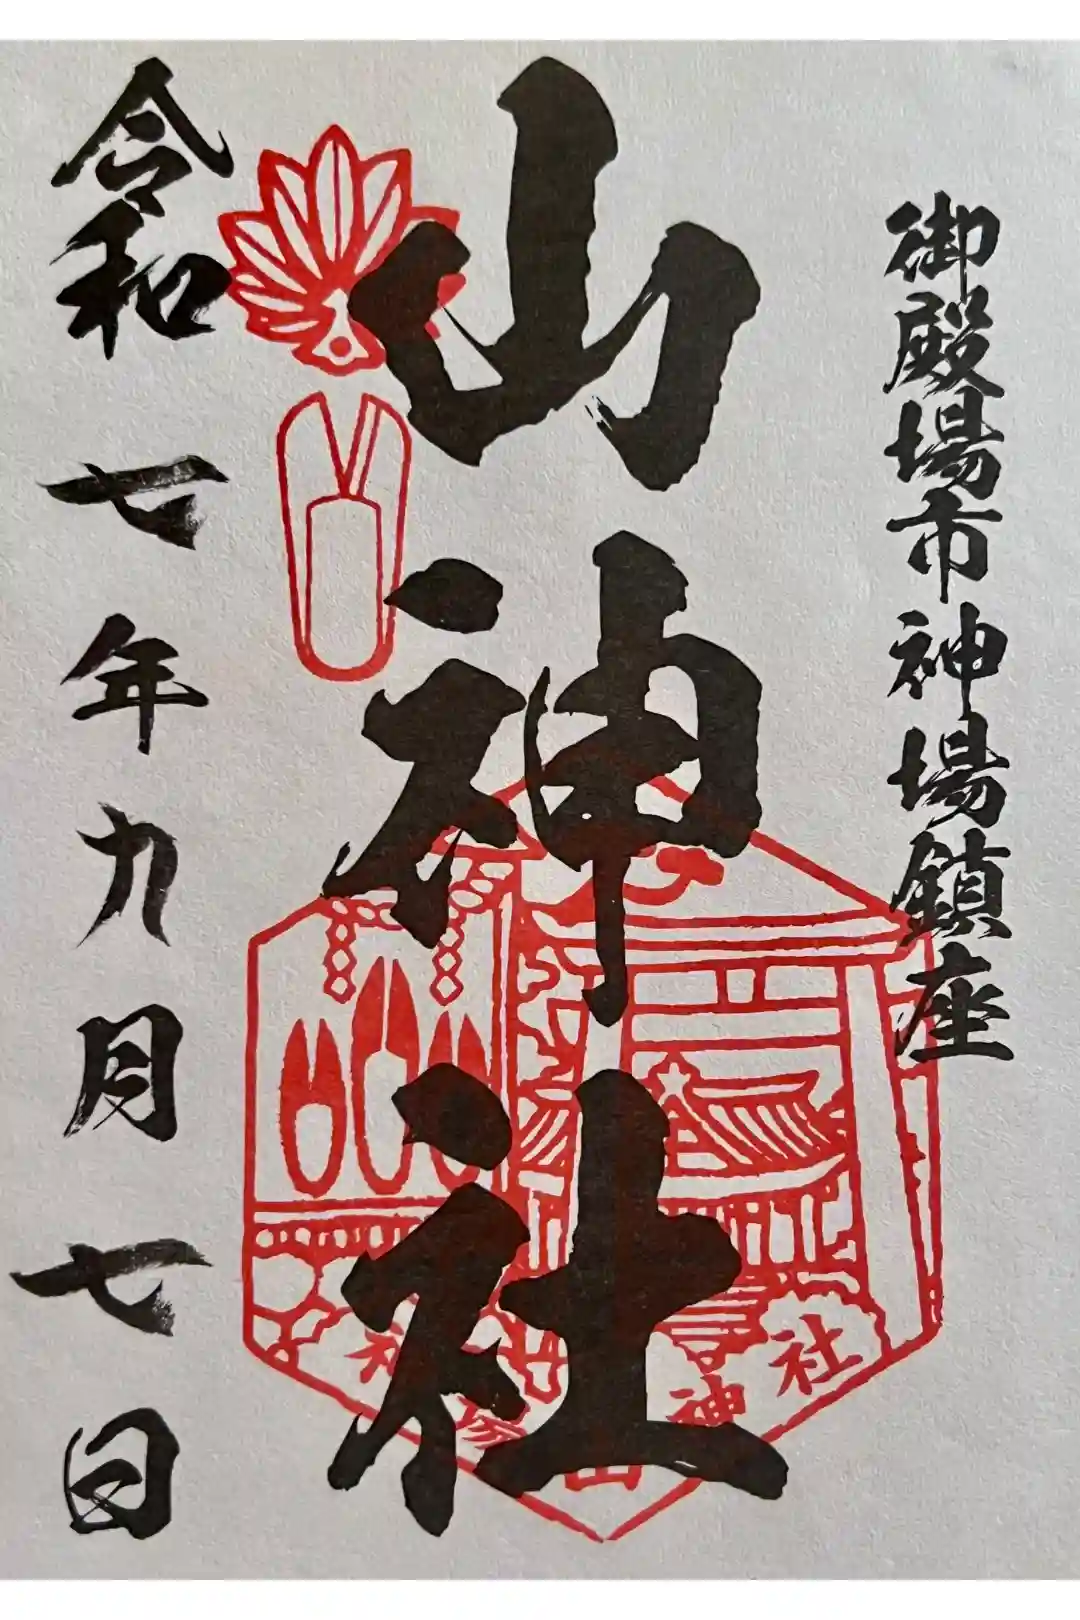 御殿場市神場鎮座
山神社
令和七年九月七日
神場山神社